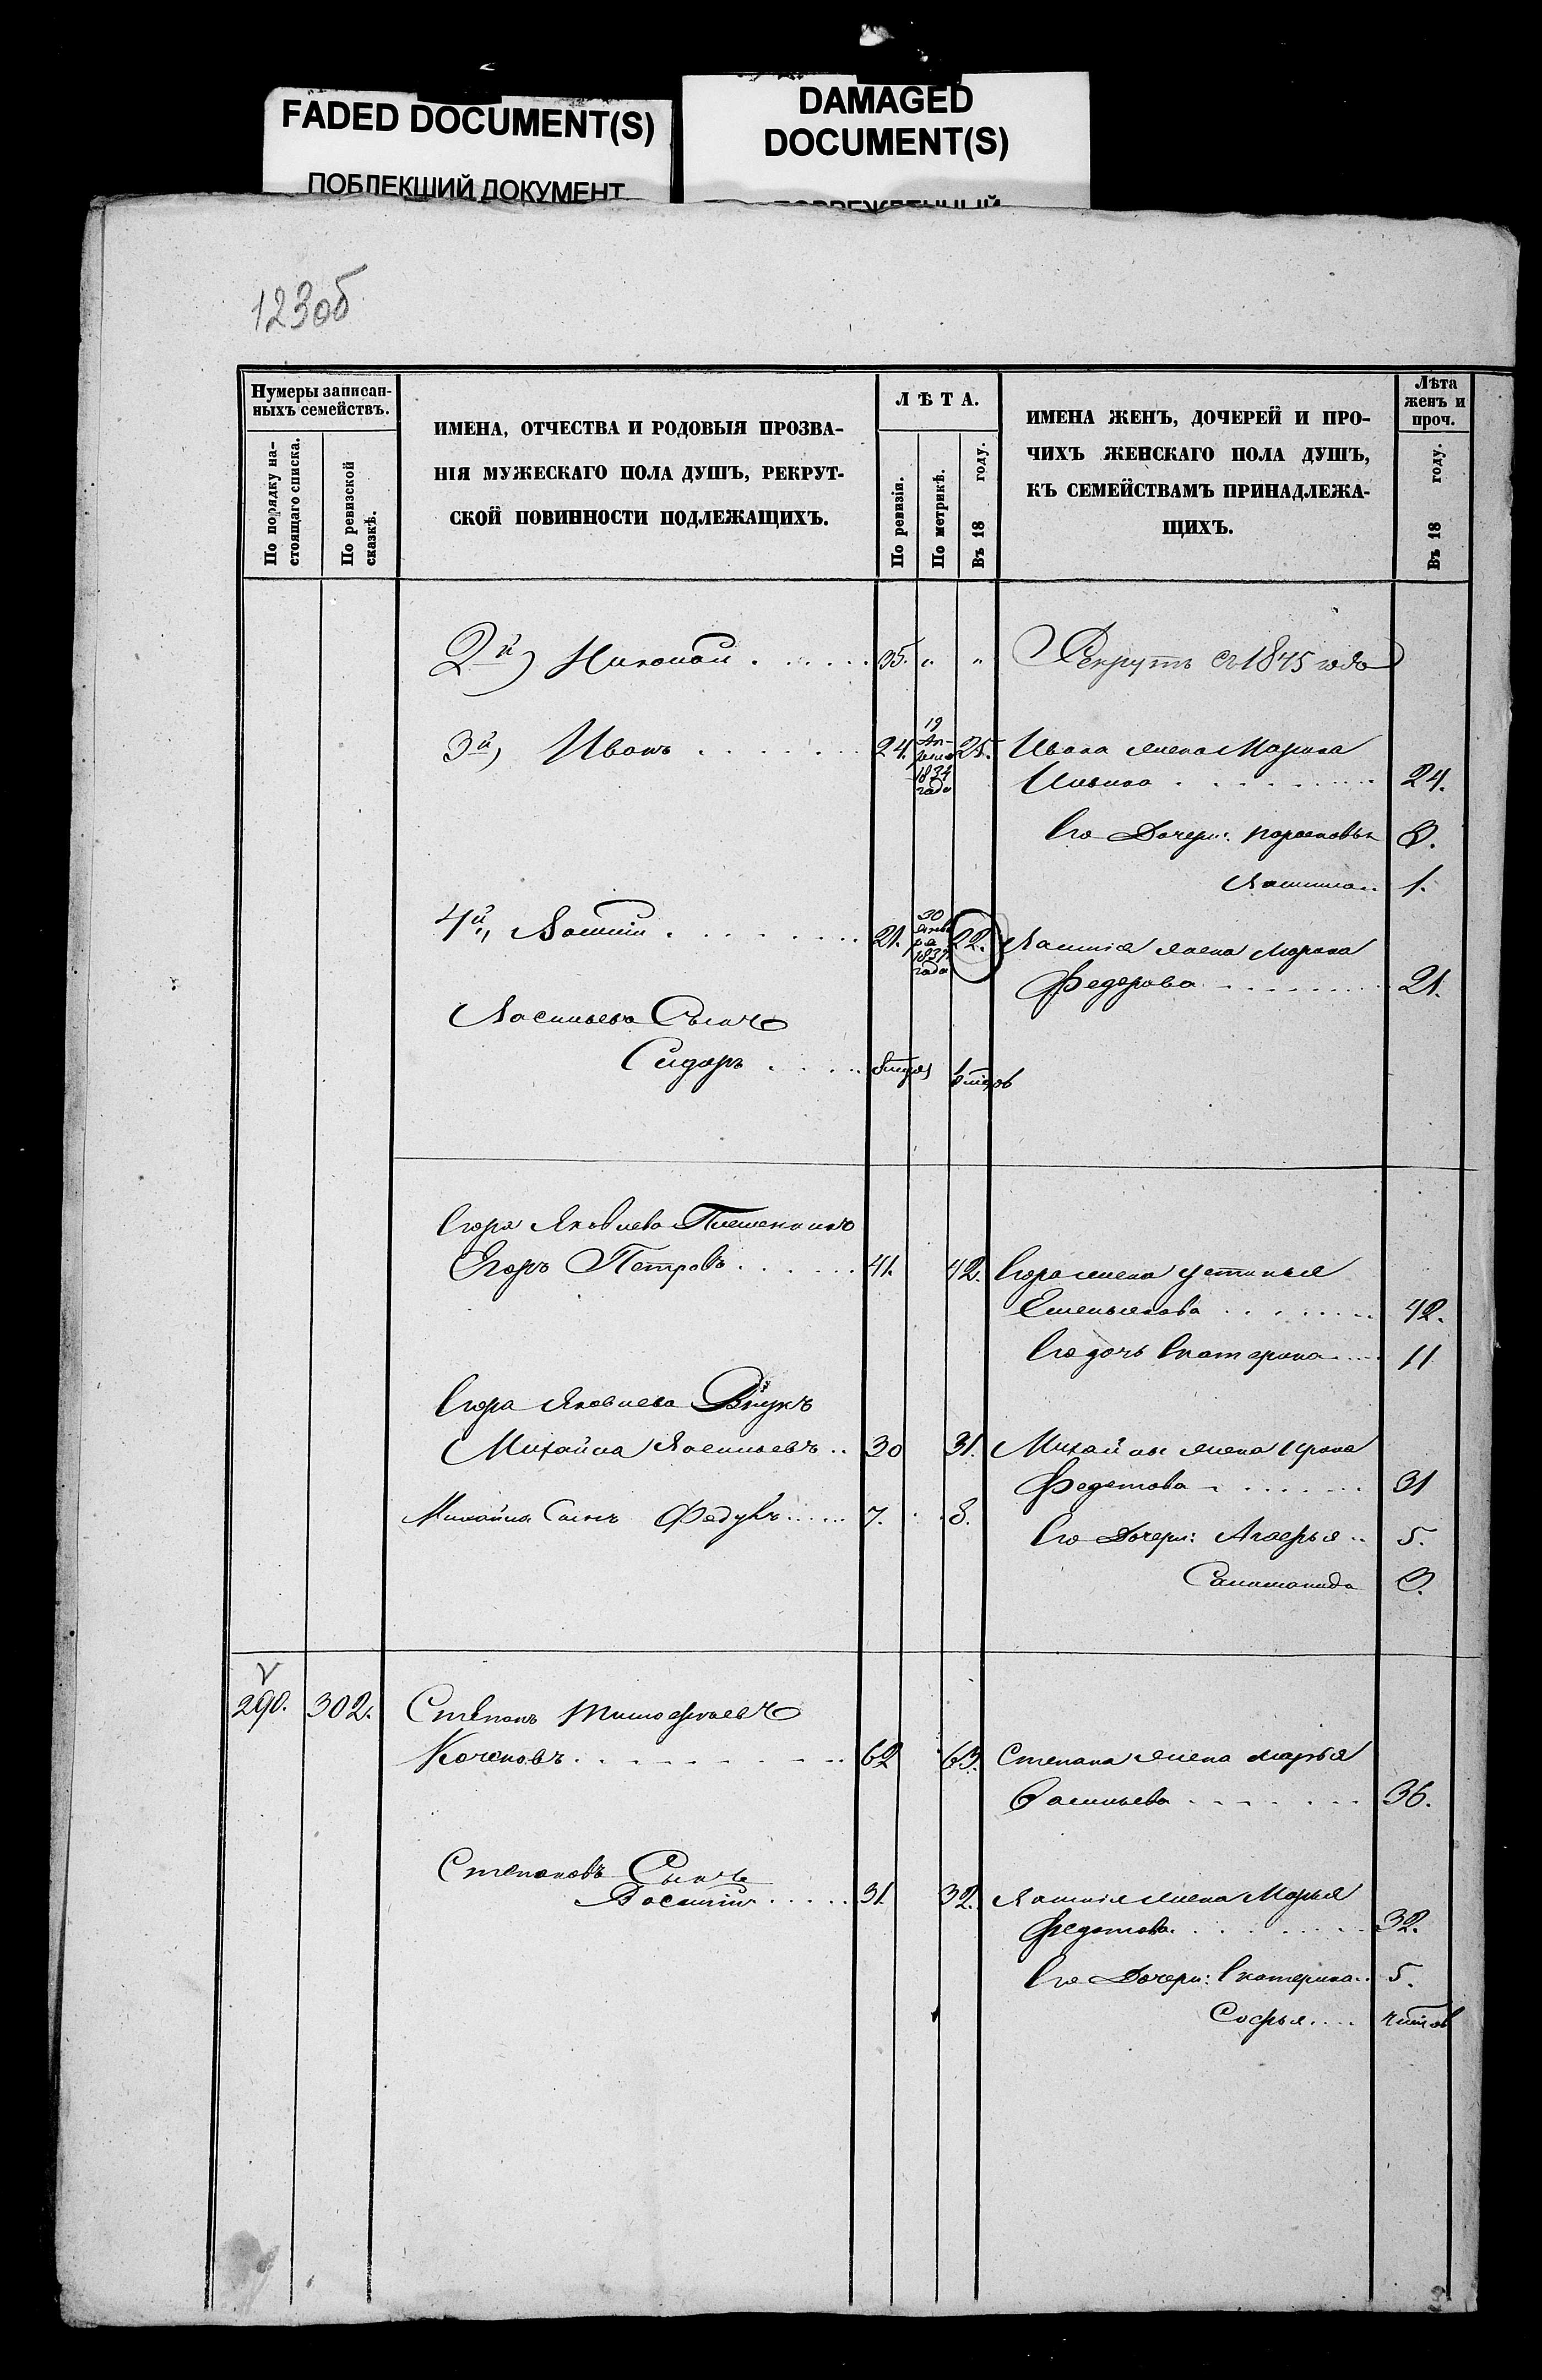 FADED DOCUMENT(S)
ПОБЛЕКШИЙ ДОКУМЕНТ
DAMAGED
DOCUMENT(S)
123об
Нумеры записан-
ныхъ семействъ.
По порядку на-
стоящаго списка.
По ревизской
сказкѣ.
ИМЕНА, ОТЧЕСТВА И РОДОВЫЯ ПРОЗВА-
НІЯ МУЖЕСКАГО ПОЛА ДУШЪ, РЕКРУТ-
СКОЙ ПОВИННОСТИ ПОДЛЕЖАЩИХЪ.
ЛѢТА.
По ревизіи.
По метрикѣ.
Въ 18 году.
ИМЕНА ЖЕНЪ, ДОЧЕРЕЙ И ПРО-
ЧИХЪ ЖЕНСКАГО ПОЛА ДУШЪ,
КЪ СЕМЕЙСТВАМЪ ПРИНАДЛЕЖА-
ЩИХЪ.
Лѣта
женъ и
проч.
Въ 18 году.
2й) 35. " " Рекрутъ съ 1845 года
3й) Иванъ 24. 19 Ап-реля 1834 года 25. Ивана жена Марина
Ильина 24.
Его Дочери: Парасковья 3.
1.
4й, Васили 21. 30 Янва ря 1837 года 22. Василія жена Марина
Федорова 21.
Васильева Сынъ
Сидоръ
Егора Яковлева Племянникъ
Егоръ Петровъ 41. 42. Егора жена Устинья
Емельянова 42.
Его дочь Екатерина 11
Егора Яковлева Внукъ
Михайла Васильевъ 30 31. Михайлы жена Ирина
Федотова 31
Михайла Сынъ 7. 8.
Его Дочери: Агафья 5.
Саламанида 3.
290. 302. Степанъ Тимофеевъ
Коченовъ 62 63. Степана жена Марья
Васильева 36.
Степановъ Сынъ
Василій 31. 32. Василія жена Марья
Федотова 32.
Его Дочери: Екатерина 5.
Софья